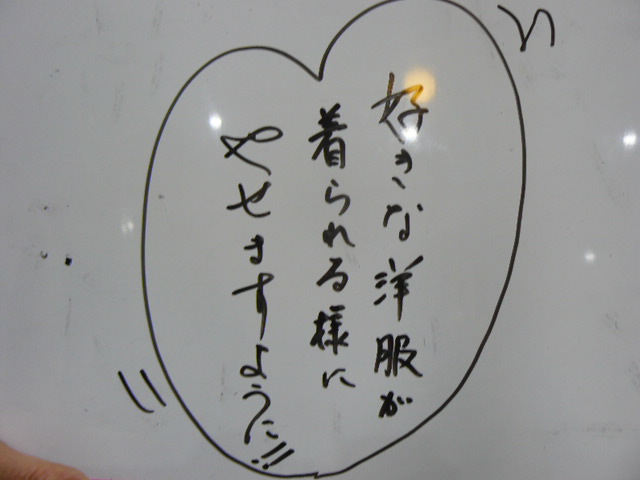 好きな洋服が
着られる様に
やせますように!!